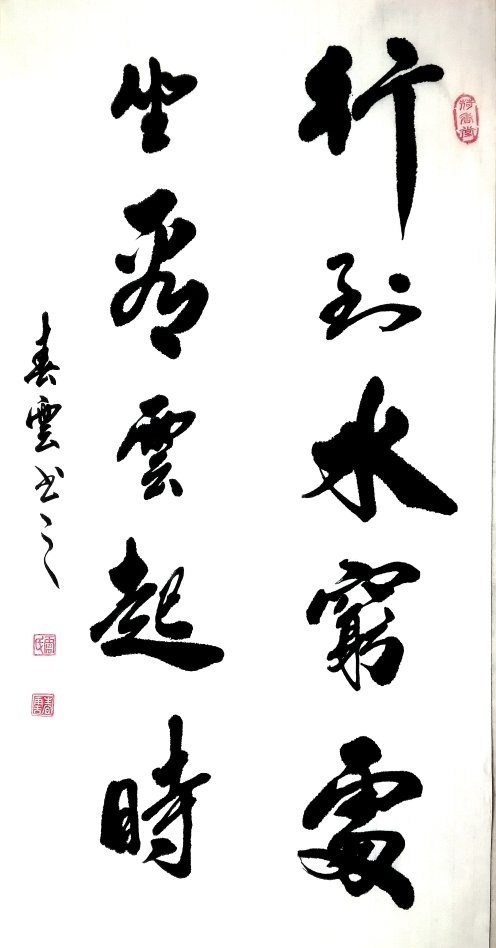 行到水窮處
坐看雲起時
春雲书之